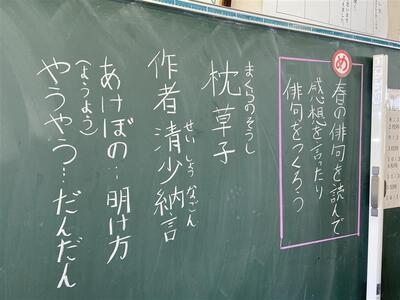 め
春の俳句を読んで
感想を言ったり
俳句をつくろう
まくらのそうし
枕草子
せいしょうなごん
作者 清少納言
あけぼの…明け方
(ようよう)
やうやう…だんだん